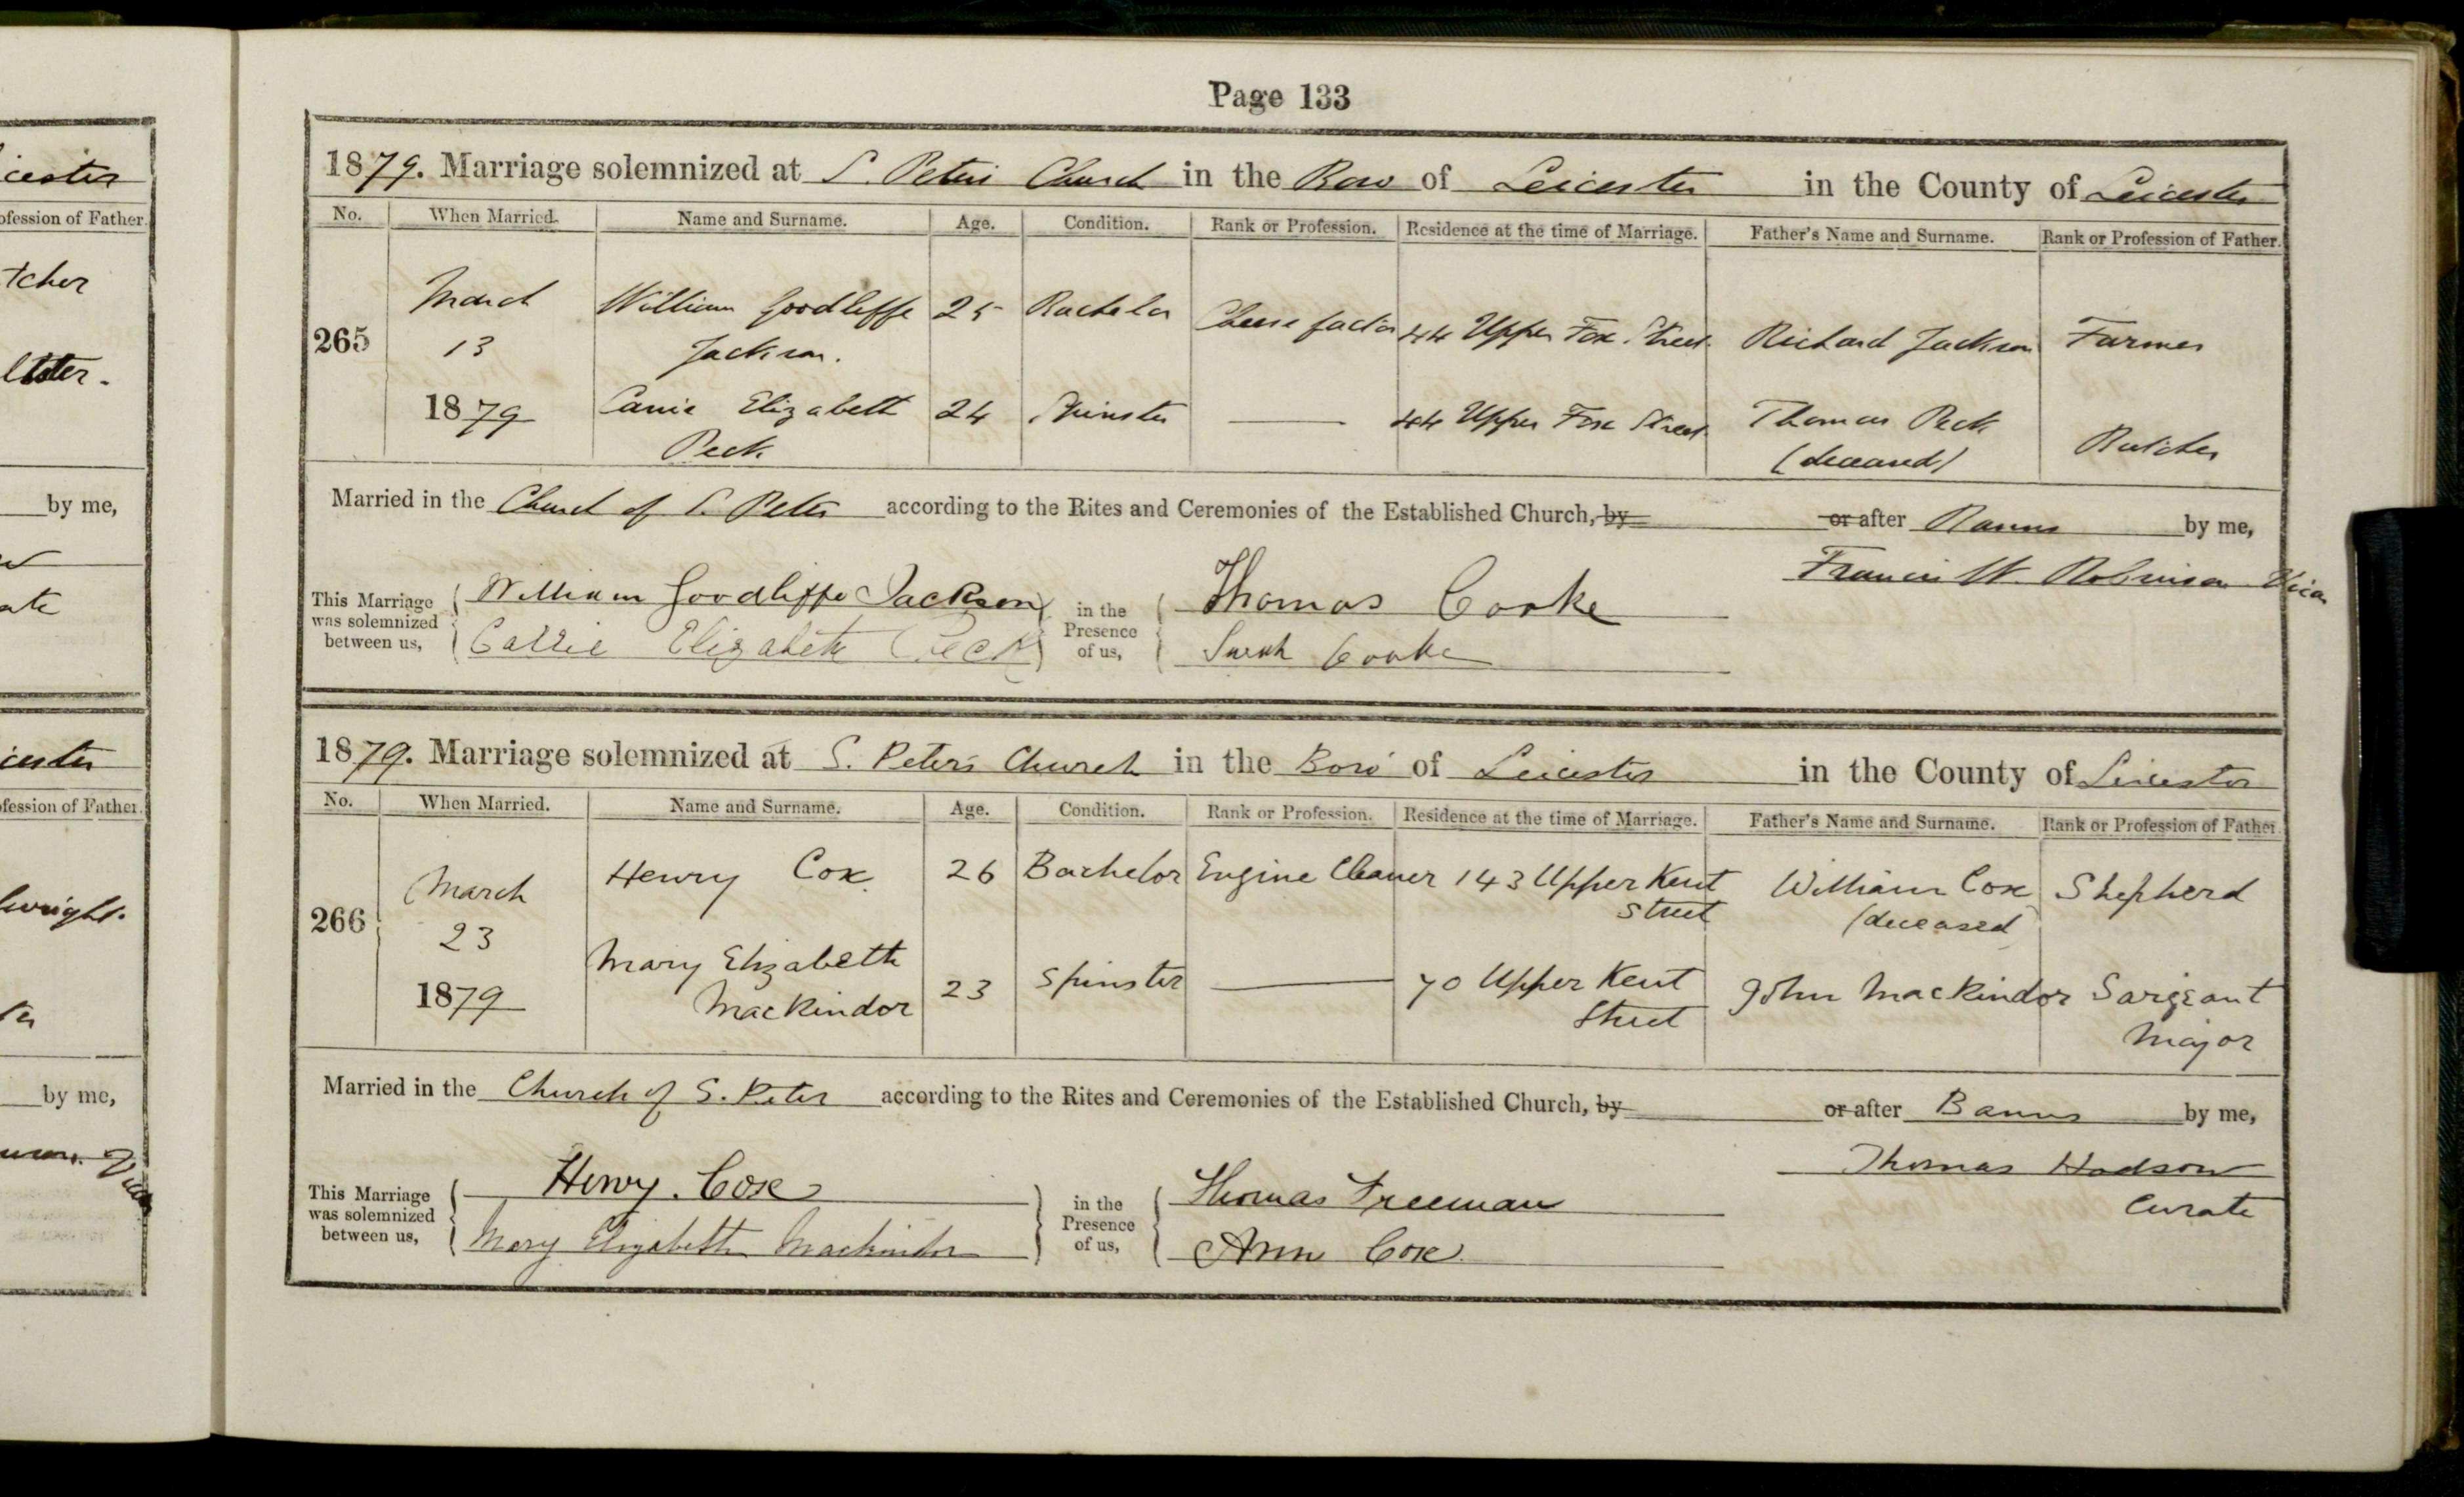 Page 133
1879. Marriage solemnized at S. Peter's Church in the Boro' of Leicester in the County of Leicester
No. When Married. Name and Surname. Age. Condition. Rank or Profession. Residence at the time of Marriage. Father's Name and Surname. Rank or Profession of Father.
265 March 13 1879 William Goodliffe Jackson. 25 Bachelor Cheese factor 44 Upper Fox Street Richard Jackson Farmer
Carrie Elizabeth Peck 24 Spinster 44 Upper Fox Street Thomas Peck (deceased) Butcher
Married in the Church of S. Peter according to the Rites and Ceremonies of the Established Church, by or after Banns by me,
Francis W. Robinson Vicar
This Marriage was solemnized between us, William Goodliffe Jackson in the Presence of us, Thomas Cooke
Carrie Elizabeth Peck Sarah Cooke
1879. Marriage solemnized at S. Peter's Church in the Boro' of Leicester in the County of Leicester
No. When Married. Name and Surname. Age. Condition. Rank or Profession. Residence at the time of Marriage. Father's Name and Surname. Rank or Profession of Father.
266 March 23 1879 Henry Cox. 26 Bachelor Engine Cleaner 143 Upper Kent Street William Cox (deceased) Shepherd
Mary Elizabeth Mackindor 23 Spinster 70 Upper Kent Street John Mackindor Sargeant Major
Married in the Church of S. Peter according to the Rites and Ceremonies of the Established Church, by or after Banns by me,
Thomas Hodson
Curate
This Marriage was solemnized between us, Henry. Cox in the Presence of us, Thomas Freeman
Mary Elizabeth Mackindor Ann Cox